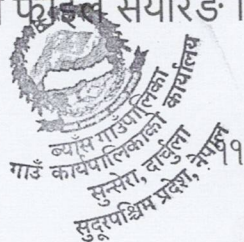 फाइल सेयारिङ
ब्याँस गाउँपालिका
गाउँ कार्यपालिकाको कार्यालय
सुन्सेरा, दार्चुला
सुदूरपश्चिम प्रदेश, नेपाल
११